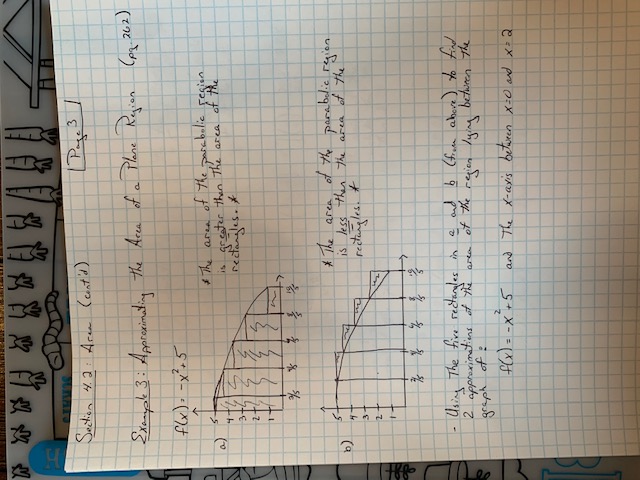 Page 3
Section 4.2: Area (cont'd)
Example 3: Approximating the Area of a Plane Region (pg. 262)
f(x) = -x² + 5
a)
* The area of the parabolic region
is greater than the area of the
rectangles. *
5
4
3
2
1
2/5 4/5 6/5 8/5 10/5
b)
* The area of the parabolic region
is less than the area of the
rectangles. *
5
4
3
2
1
2/5 4/5 6/5 8/5 10/5
- Using the five rectangles in a and b (from above) to find
2 approximations of the area of the region lying between the
graph of:
f(x) = -x² + 5 and the x-axis between x=0 and x=2